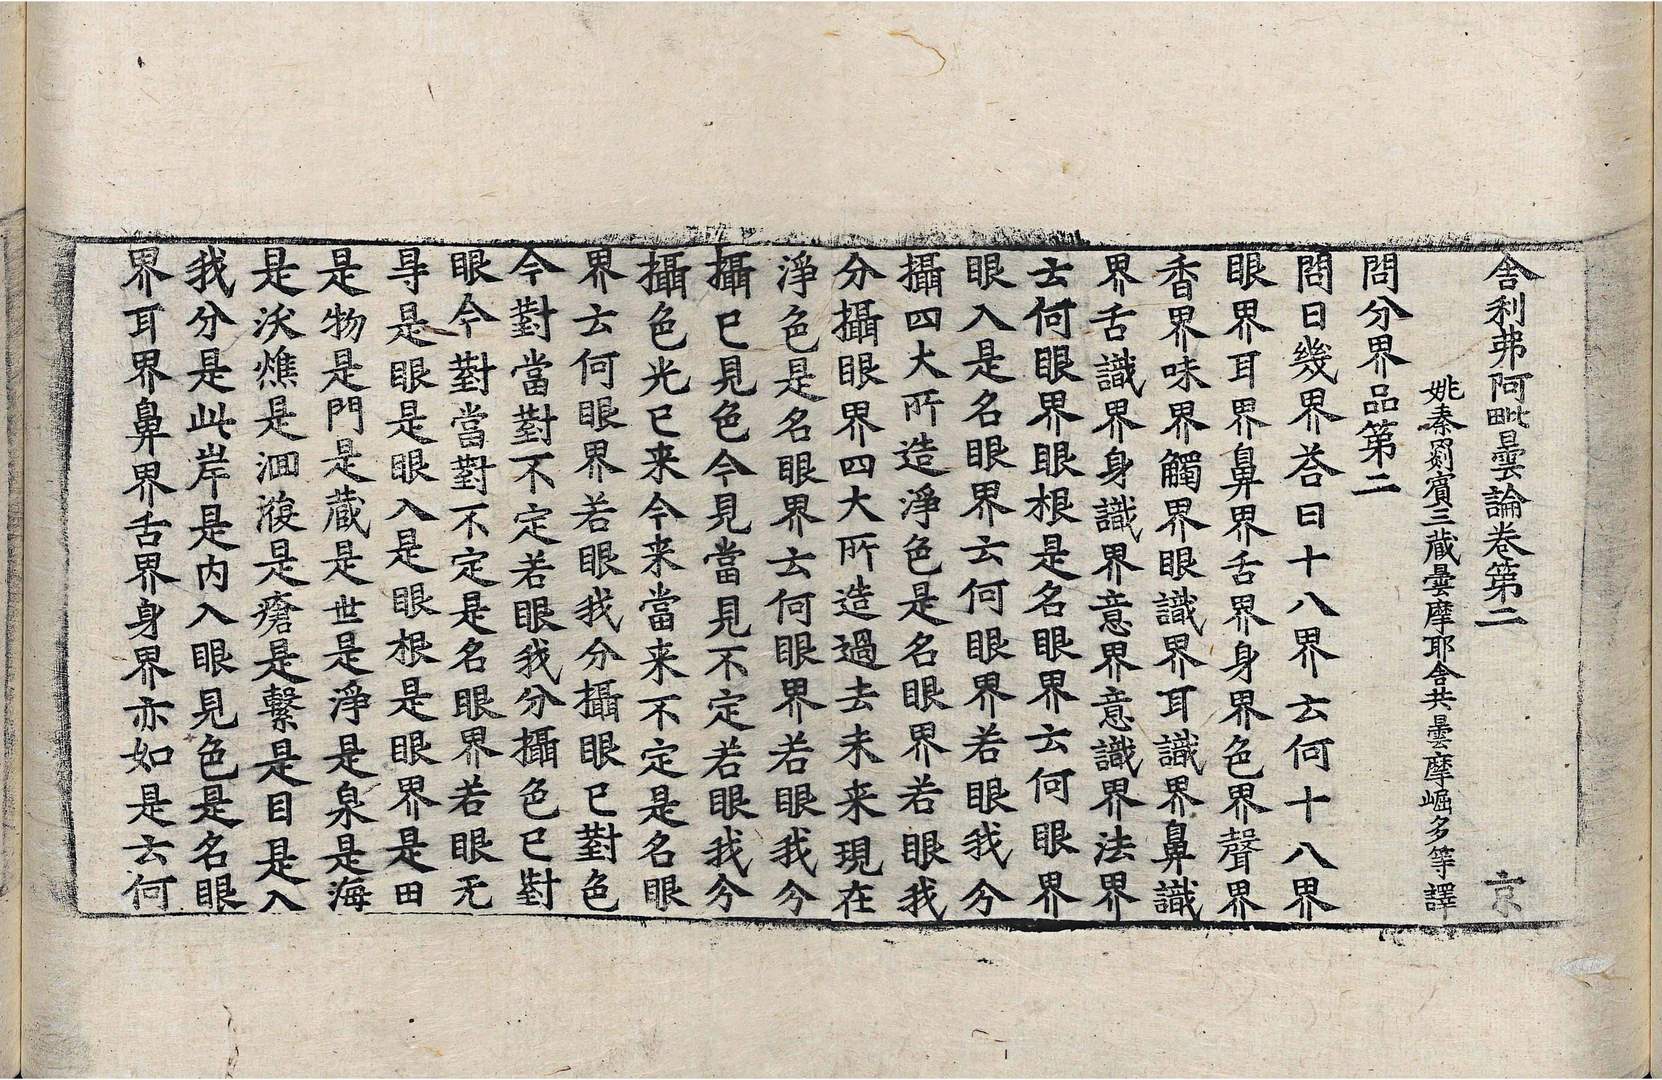 舍利弗阿毗曇論卷第二 京
姚秦罽賓三藏曇摩耶舍共曇摩崛多等譯
問分界品第二
問曰幾界荅曰十八界云何十八界
眼界耳界鼻界舌界身界色界聲界
香界味界觸界眼識界耳識界鼻識
界舌識界身識界意界意識界法界
云何眼界眼根是名眼界云何眼界
眼入是名眼界云何眼界若眼我分
攝四大所造淨色是名眼界若眼我
分攝眼界四大所造過去未来現在
淨色是名眼界云何眼界若眼我分
攝已見色今見當見不定若眼我分
攝色光已来今来當来不定是名眼
界云何眼界若眼我分攝眼已對色
今對當對不定若眼我分攝色已對
眼今對當對不定是名眼界若眼无
㝵是眼是眼入是眼根是眼界是田
是物是門是藏是世是淨是泉是海
是沃燋是洄澓是瘡是繫是目是入
我分是此岸是内入眼見色是名眼
界耳界鼻界舌界身界亦如是云何